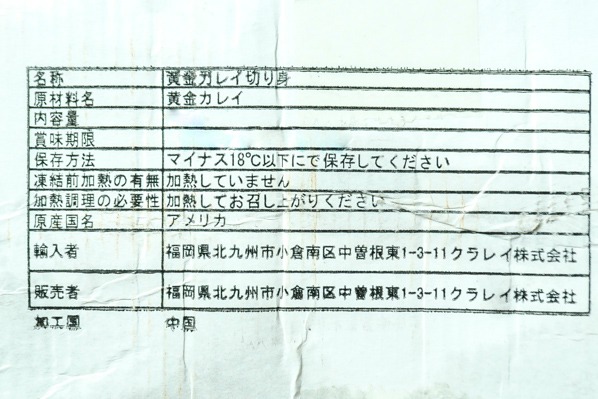 名称 黄金カレイ切り身
原材料名 黄金カレイ
内容量
賞味期限
保存方法 マイナス18℃以下にで保存してください
凍結前加熱の有無 加熱していません
加熱調理の必要性 加熱してお召し上がりください
原産国名 アメリカ
輸入者 福岡県北九州市小倉南区中曽根東1-3-11クラレイ株式会社
販売者 福岡県北九州市小倉南区中曽根東1-3-11クラレイ株式会社
加工国 中国